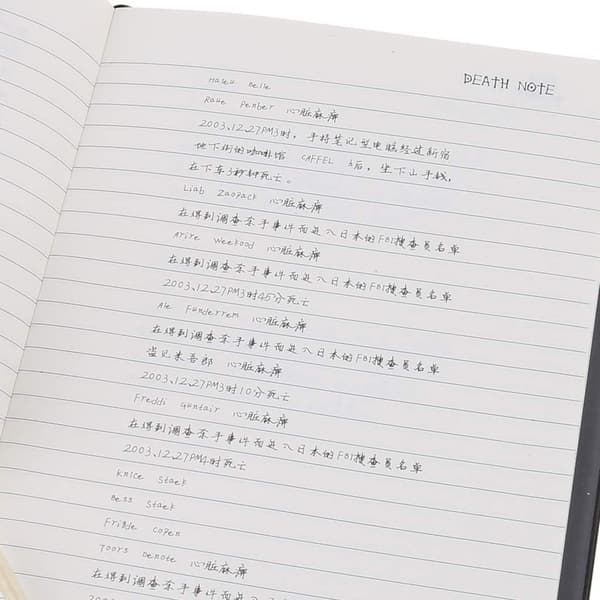 DEATH NOTE
Haseu Belle
Raye Penber 心脏麻痹
2003.12.27PM3时，手持笔记型电脑经过新宿
地下街的咖啡馆 CAFFEL 3后，坐下山手线，
在下车3秒钟死亡。
Liab Zaopack 心脏麻痹
在得到调查杀手事件而进入日本的FBI搜查员名单
Arire Weekood 心脏麻痹
在得到调查杀手事件而进入日本的FBI搜查员名单
2003.12.27PM3时45分死亡
Ale Funderrem 心脏麻痹
在得到调查杀手事件而进入日本的FBI搜查员名单
盗见米吾郎 心脏麻痹
2003.12.27PM3时10分死亡
Freddi Guntair 心脏麻痹
在得到调查杀手事件而进入日本的FBI搜查员名单
2003.12.27PM4时死亡
Knice Staek
Bess Staek
Fridde Copen
Toors Denote 心脏麻痹
在得到调查杀手事件而进入日本的FBI搜查员名单